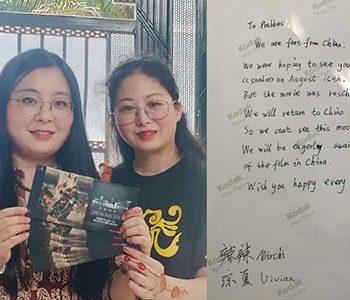 To Prabhas:
We are fans from China.
We were hoping to see you
(saaho) on August 15th.
But the movie was resch
We will return to China
So we can't see this movi
We will be eagerly await
of the film in China.
Wish you happy every
辣辣 Mirchi
琼夏 Vivian
Kodak
Kodak
Kodak
Kodak
Kodak